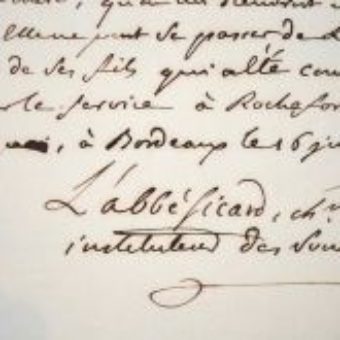 Elle ne peut se passer de
de ses fils qui a été com
le service à Rochefor
à Bordeaux le 16 ju
L'abbé Sicard, ch
instituteur des Sou